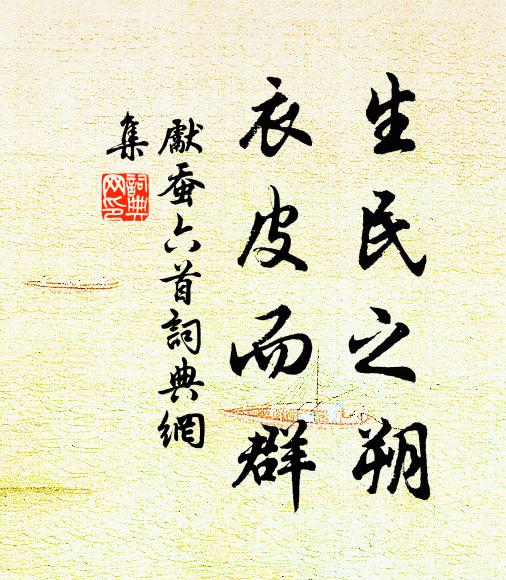 生民之朔
衣皮而群
獻蚕六首詞典網
集
詞典
网印